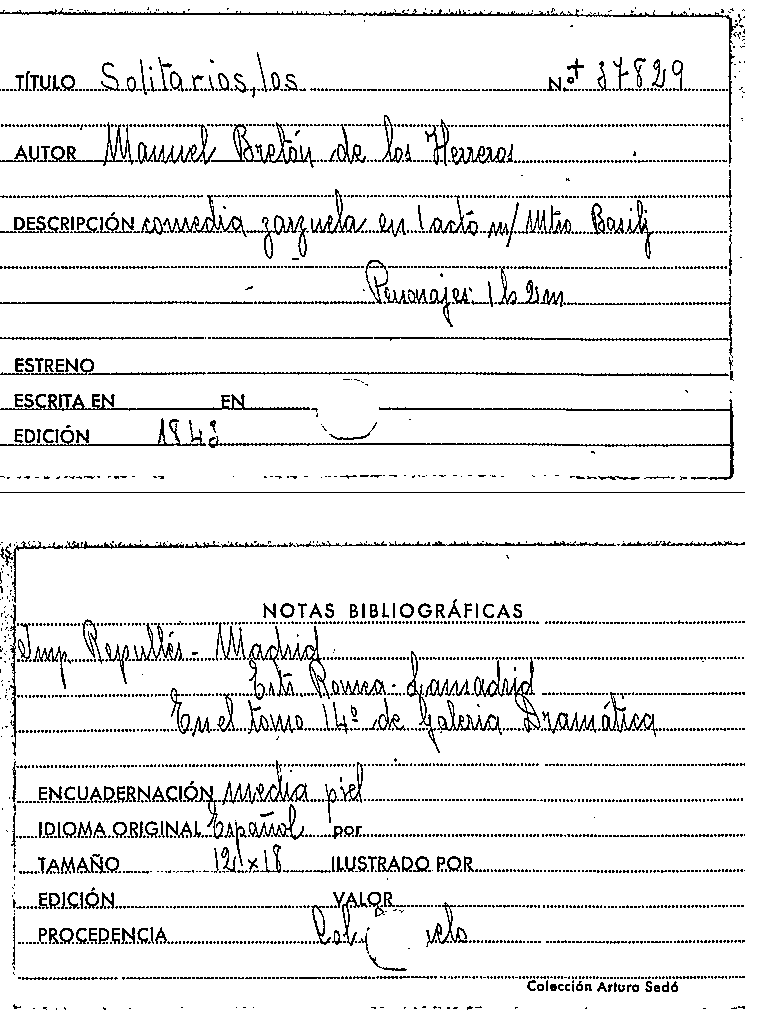 TÍTULO Solitarios, los N.º+ 37829
AUTOR Manuel Bretón de los Herreros
DESCRIPCIÓN comedia zarzuela en 1 acto m/ Mtro Basilj
Personajes: 1 h 2 m
ESTRENO
ESCRITA EN EN
EDICIÓN 1843
NOTAS BIBLIOGRÁFICAS
Imp Repullés - Madrid
Estr Romea - Lamadrid
En el tomo 14º de Galeria Dramática
ENCUADERNACIÓN media piel
IDIOMA ORIGINAL Español por
TAMAÑO 12 x 18 ILUSTRADO POR
EDICIÓN VALOR
PROCEDENCIA
Colección Arturo Sedó